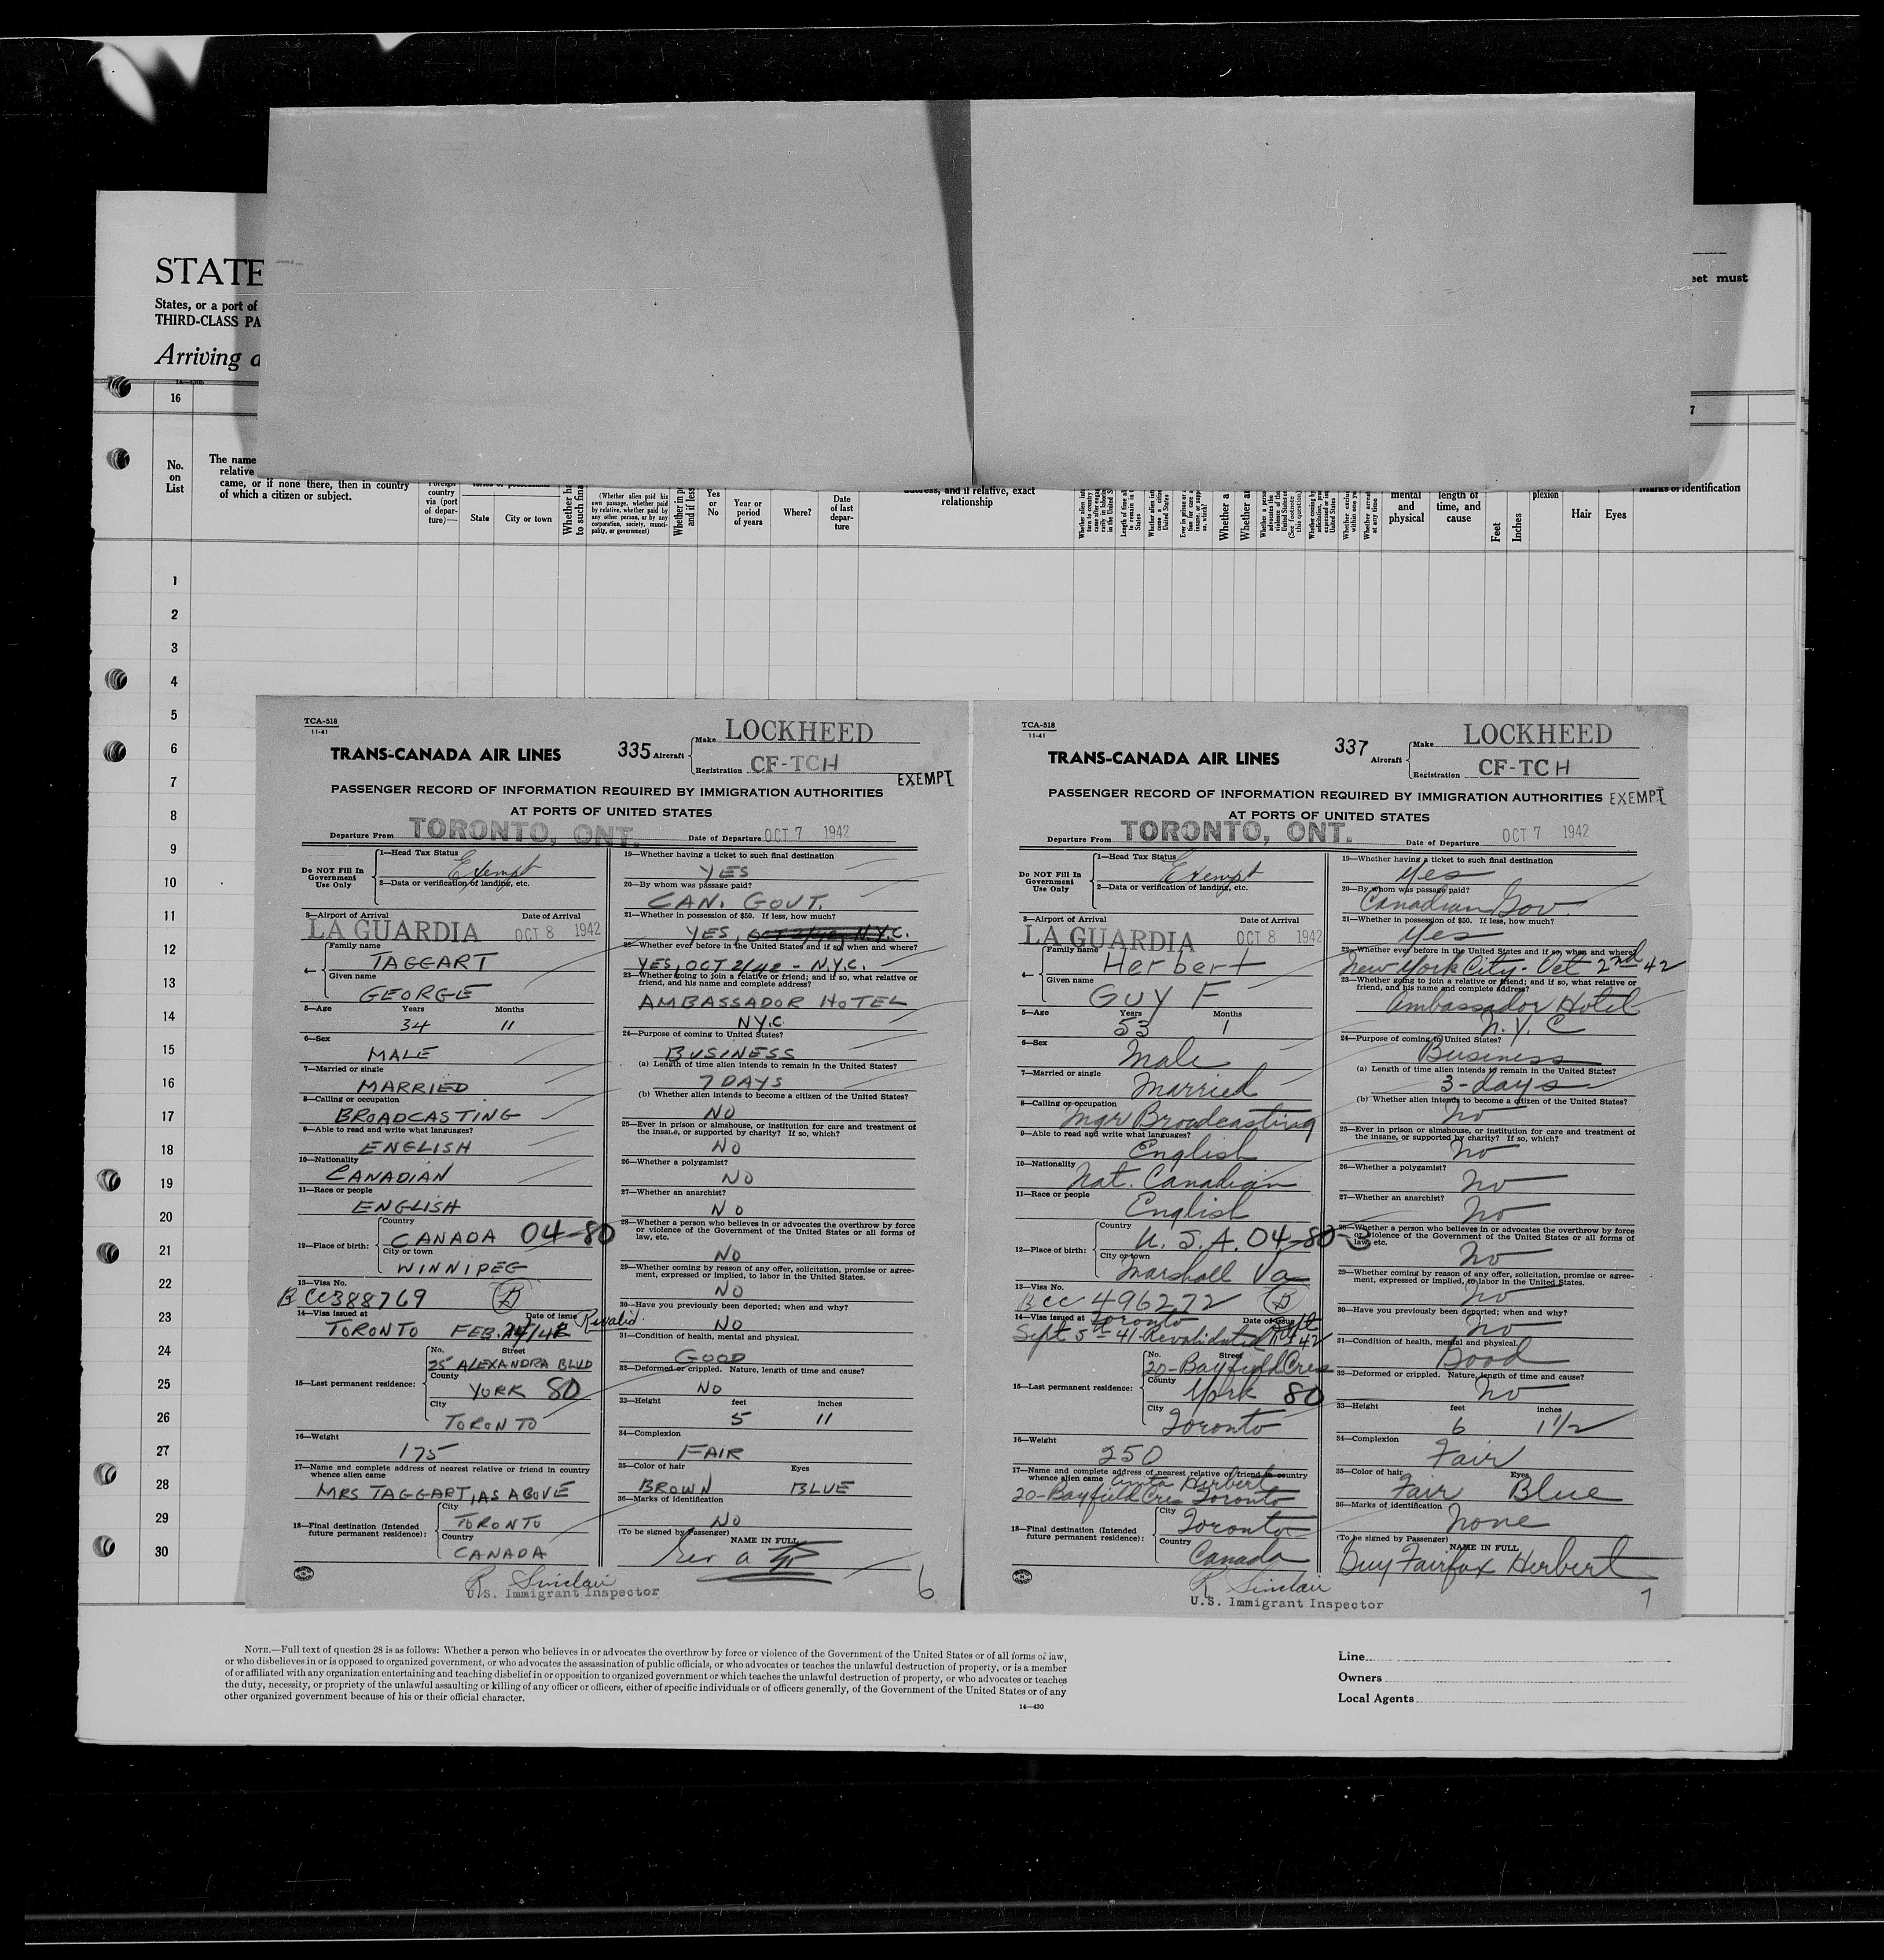 STATE
States, or a port of
THIRD-CLASS PA
Arriving a
eet must
16
7
No.
on
List
The name
relative
came, or if none there, then in country
of which a citizen or subject.
Foreign
country
via (port
of depar-
ture)—
State
City or town
Whether ha
to such fina
(Whether alien paid his
own passage, whether paid
by relative, whether paid by
any other person, or by any
corporation, society, munici-
pality, or government)
Whether in p
and if less
Yes
or
No
Year or
period
of years
Where?
Date
of last
depar-
ture
address, and if relative, exact
relationship
Whether a
Whether a
mental
and
physical
length of
time, and
cause
Feet
Inches
plexion
Hair
Eyes
Marks of identification
1
2
3
4
5
6
7
8
9
10
11
12
13
14
15
16
17
18
19
20
21
22
23
24
25
26
27
28
29
30
TCA-518
11-41
TRANS-CANADA AIR LINES
335 Aircraft
Make LOCKHEED
Registration CF-TCH
EXEMPT
PASSENGER RECORD OF INFORMATION REQUIRED BY IMMIGRATION AUTHORITIES
AT PORTS OF UNITED STATES
Departure From TORONTO, ONT. Date of Departure OCT 7 1942
Do NOT Fill In
Government
Use Only
1—Head Tax Status Exempt
2—Data or verification of landing, etc.
3—Airport of Arrival Date of Arrival
LA GUARDIA OCT 8 1942
4—
Family name
TAGGART
Given name
GEORGE
5—Age Years Months
34 11
6—Sex
MALE
7—Married or single
MARRIED
8—Calling or occupation
BROADCASTING
9—Able to read and write what languages?
ENGLISH
10—Nationality
CANADIAN
11—Race or people
ENGLISH
12—Place of birth:
Country
CANADA 04-80
City or town
WINNIPEG
13—Visa No.
B CC388769 B
14—Visa issued at Date of issue Revalid.
TORONTO FEB. 24/42
15—Last permanent residence:
No. Street
25 ALEXANDRA BLVD
County
YORK 80
City
TORONTO
16—Weight
175
17—Name and complete address of nearest relative or friend in country
whence alien came
MRS TAGGART, AS ABOVE
18—Final destination (Intended
future permanent residence):
City
TORONTO
Country
CANADA
R Sinclair
U.S. Immigrant Inspector
19—Whether having a ticket to such final destination
YES
20—By whom was passage paid?
CAN. GOVT.
21—Whether in possession of $50. If less, how much?
YES, OCT 2/42, N.Y.C.
22—Whether ever before in the United States and if so, when and where?
YES, OCT 2/42 - N.Y.C.
23—Whether going to join a relative or friend; and if so, what relative or
friend, and his name and complete address?
AMBASSADOR HOTEL
N.Y.C.
24—Purpose of coming to United States?
BUSINESS
(a) Length of time alien intends to remain in the United States?
7 DAYS
(b) Whether alien intends to become a citizen of the United States?
NO
25—Ever in prison or almshouse, or institution for care and treatment of
the insane, or supported by charity? If so, which?
NO
26—Whether a polygamist?
NO
27—Whether an anarchist?
NO
28—Whether a person who believes in or advocates the overthrow by force
or violence of the Government of the United States or all forms of
law, etc.
NO
29—Whether coming by reason of any offer, solicitation, promise or agree-
ment, expressed or implied, to labor in the United States.
NO
30—Have you previously been deported; when and why?
NO
31—Condition of health, mental and physical.
GOOD
32—Deformed or crippled. Nature, length of time and cause?
NO
33—Height feet inches
5 11
34—Complexion
FAIR
35—Color of hair Eyes
BROWN BLUE
36—Marks of identification
NO
(To be signed by Passenger)
NAME IN FULL
6
TCA-518
11-41
TRANS-CANADA AIR LINES
337 Aircraft
Make LOCKHEED
Registration CF-TCH
PASSENGER RECORD OF INFORMATION REQUIRED BY IMMIGRATION AUTHORITIES EXEMPT
AT PORTS OF UNITED STATES
Departure From TORONTO, ONT. Date of Departure OCT 7 1942
Do NOT Fill In
Government
Use Only
1—Head Tax Status Exempt
2—Data or verification of landing, etc.
3—Airport of Arrival Date of Arrival
LA GUARDIA OCT 8 1942
4—
Family name
Herbert
Given name
GUY F
5—Age Years Months
53 1
6—Sex
Male
7—Married or single
Married
8—Calling or occupation
Mgr Broadcasting
9—Able to read and write what languages?
English
10—Nationality
Nat. Canadian
11—Race or people
English
12—Place of birth:
Country
U.S.A. 04-80
City or town
Marshall Va
13—Visa No.
BCC 496272 B
14—Visa issued at Toronto Date of issue
Sept 5th 41 Revalidated Sept 42
15—Last permanent residence:
No. Street
20-Bayfield Cres
County
York 80
City
Toronto
16—Weight
250
17—Name and complete address of nearest relative or friend in country
whence alien came Anita Herbert
20-Bayfield Cres Toronto
18—Final destination (Intended
future permanent residence):
City
Toronto
Country
Canada
R Sinclair
U.S. Immigrant Inspector
19—Whether having a ticket to such final destination
Yes
20—By whom was passage paid?
Canadian Gov.
21—Whether in possession of $50. If less, how much?
Yes
22—Whether ever before in the United States and if so, when and where?
New York City - Oct 2nd 42
23—Whether going to join a relative or friend; and if so, what relative or
friend, and his name and complete address?
Ambassador Hotel
N.Y.C
24—Purpose of coming to United States?
Business
(a) Length of time alien intends to remain in the United States?
3-days
(b) Whether alien intends to become a citizen of the United States?
No
25—Ever in prison or almshouse, or institution for care and treatment of
the insane, or supported by charity? If so, which?
No
26—Whether a polygamist?
No
27—Whether an anarchist?
No
28—Whether a person who believes in or advocates the overthrow by force
or violence of the Government of the United States or all forms of
law, etc.
No
29—Whether coming by reason of any offer, solicitation, promise or agree-
ment, expressed or implied, to labor in the United States.
No
30—Have you previously been deported; when and why?
No
31—Condition of health, mental and physical.
Good
32—Deformed or crippled. Nature, length of time and cause?
No
33—Height feet inches
6 1 1/2
34—Complexion
Fair
35—Color of hair Eyes
Fair Blue
36—Marks of identification
None
(To be signed by Passenger)
NAME IN FULL
Guy Fairfax Herbert
7
NOTE.—Full text of question 28 is as follows: Whether a person who believes in or advocates the overthrow by force or violence of the Government of the United States or of all forms of law,
or who disbelieves in or is opposed to organized government, or who advocates the assassination of public officials, or who advocates or teaches the unlawful destruction of property, or is a member
of or affiliated with any organization entertaining and teaching disbelief in or opposition to organized government or which teaches the unlawful destruction of property, or who advocates or teaches
the duty, necessity, or propriety of the unlawful assaulting or killing of any officer or officers, either of specific individuals or of officers generally, of the Government of the United States or of any
other organized government because of his or their official character.
14—430
Line
Owners
Local Agents